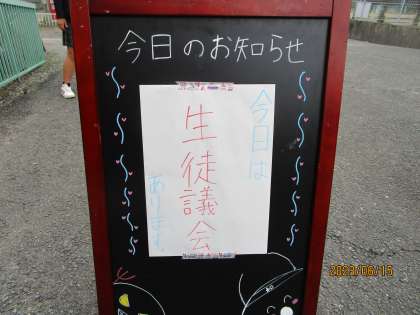 今日のお知らせ
今日は
生徒議会
あります。
2023/06/15